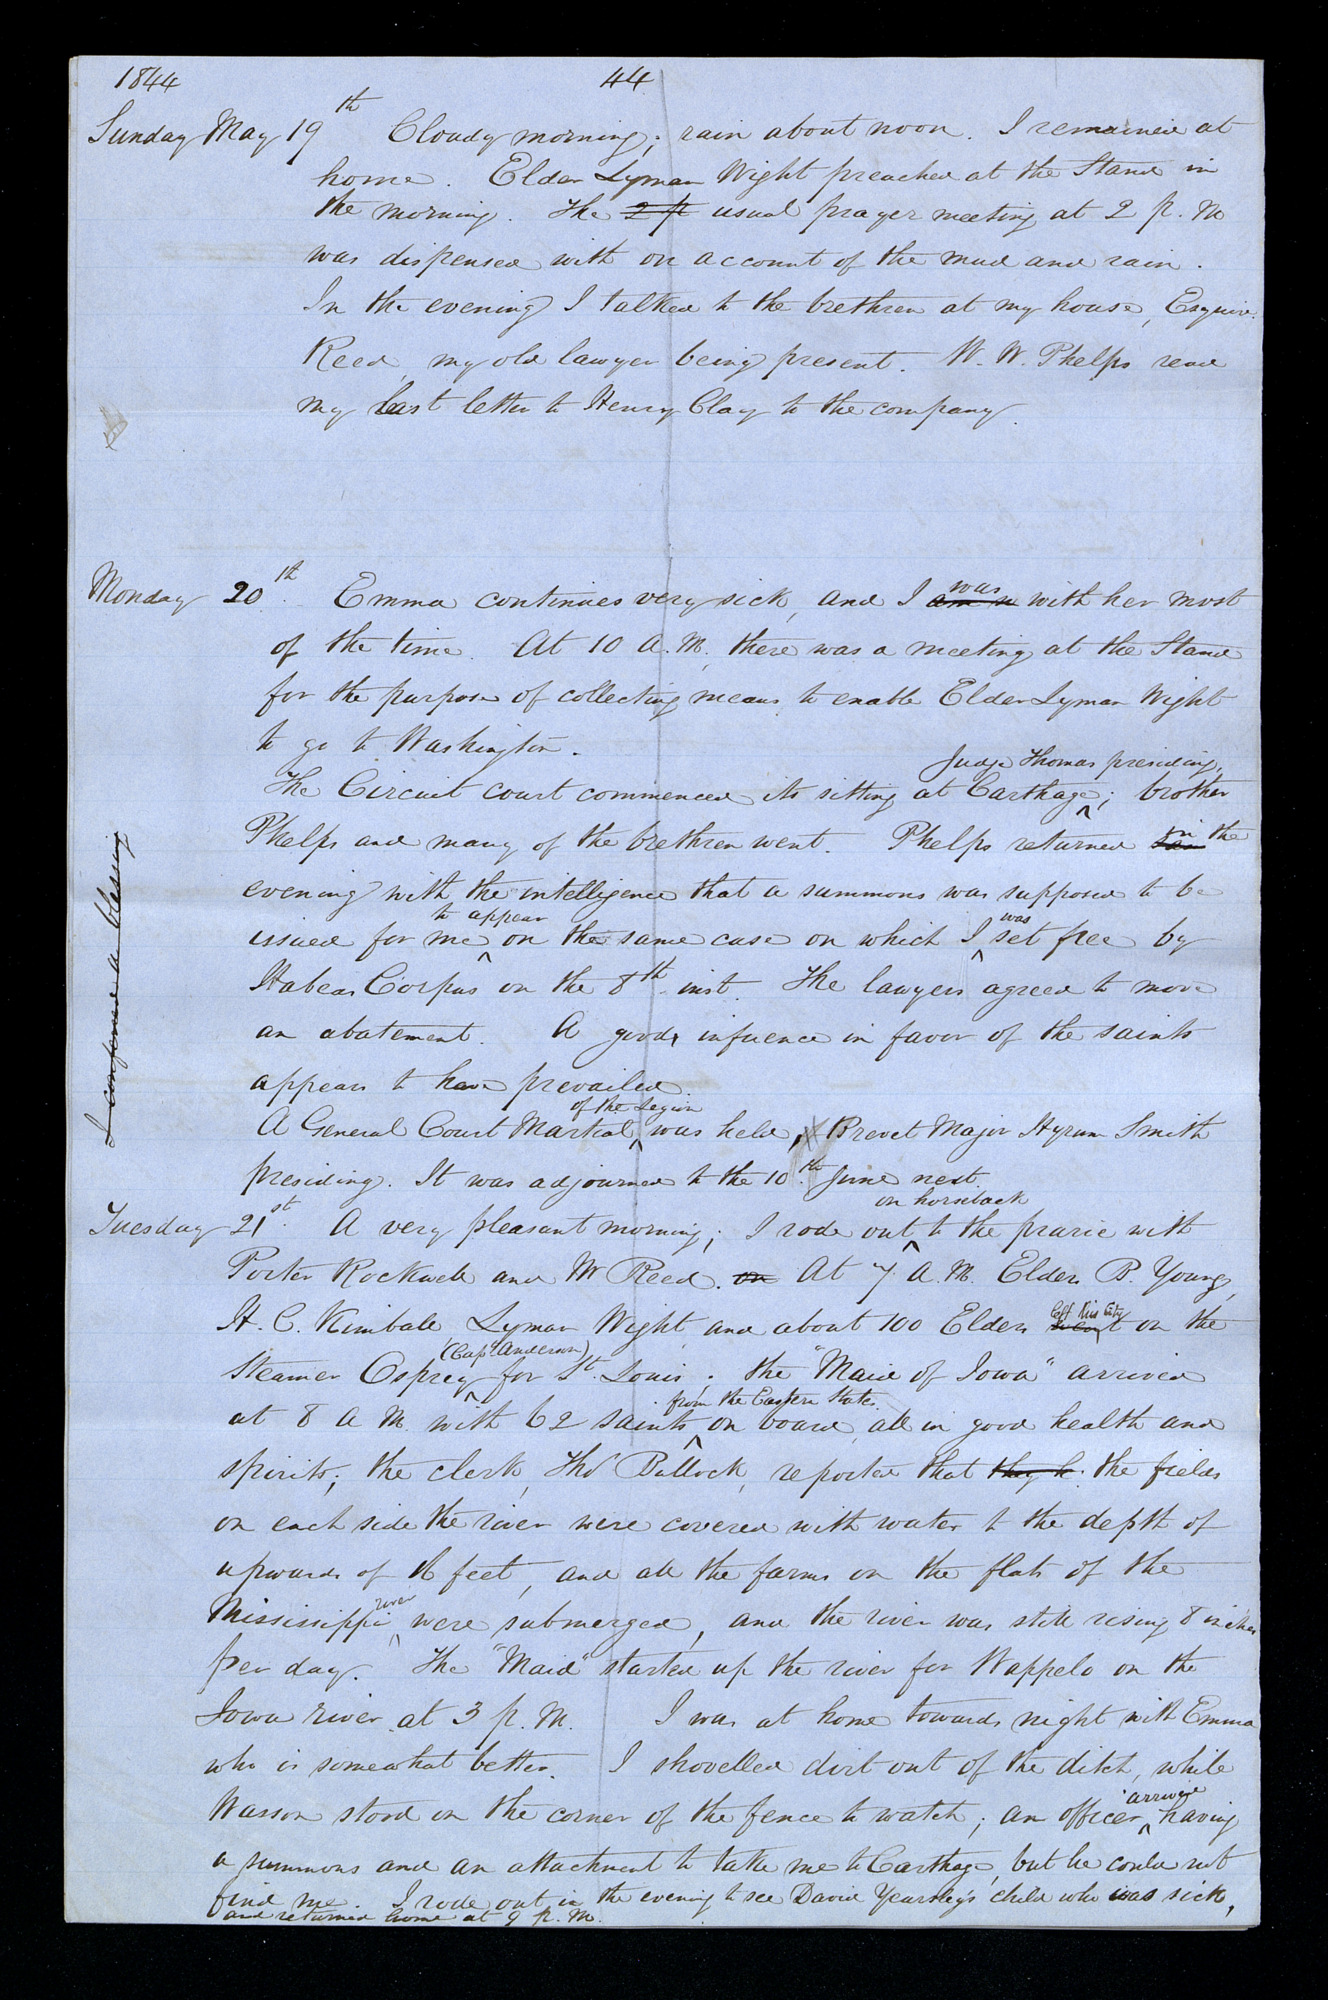 1844
44
Sunday May 19th Cloudy morning; rain about noon. I remained at
home. Elder Lyman Wight preached at the Stand in
the morning. The 2 p usual prayer meeting at 2 p. M
was dispensed with on account of the mud and rain.
In the evening I talked to the brethren at my house, Esquire
Reed, my old lawyer being present. W. W. Phelps read
my last letter to Henry Clay to the company.
Monday 20th. Emma continues very sick, and I am was with her most
of the time. At 10 A. M. there was a meeting at the Stand
for the purpose of collecting means to enable Elder Lyman Wight
to go to Washington.
Judge Thomas presiding,
The Circuit court commenced its sitting at Carthage; brother
Phelps and many of the brethren went. Phelps returned in the
evening with the intelligence that a summons was supposed to be
to appear was
issued for me on the same case on which I set free by
Habeas Corpus on the 8th inst. The lawyers agreed to move
an abatement. A good infuence in favor of the saints
appears to have prevailed.
I conferred a blessing
of the Legion
A General Court Martial, was held, Brevet Major Hyrum Smith
presiding. It was adjourned to the 10th. June next.
on horseback
Tuesday 21st. A very pleasant morning; I rode out to the prarie with
Porter Rockwell and Mr Reed. on At 7. A. M. Elders B. Young,
H. C. Kimball Lyman Wight, and about 100 Elders left this City on the
(Capn. Anderson)
Steamer Osprey for St. Louis; the "Maid of Iowa" arrived
from the Eastern States.
at 8 A M. with 62 saints on board, all in good health and
spirits; the clerk, Thos Bullock, reported that they h the fields
on each side the river were covered with water to the depth of
upwards of 16 feet, and all the farms on the flats of the
river
Mississippi were submerged, and the river was still rising 8 inches
per day. The "Maid" started up the river for Wappelo on the
Iowa river at 3 p. M. I was at home towards night with Emma
who is somewhat better. I shovelled dirt out of the ditch, while
arrived
Wasson stood on the corner of the fence to watch; an officer having
a summons and an attachment to take me to Carthage, but he could not
find me. I rode out in the evening to see David Yearsley's child who was sick,
and returned home at 9 p. M.